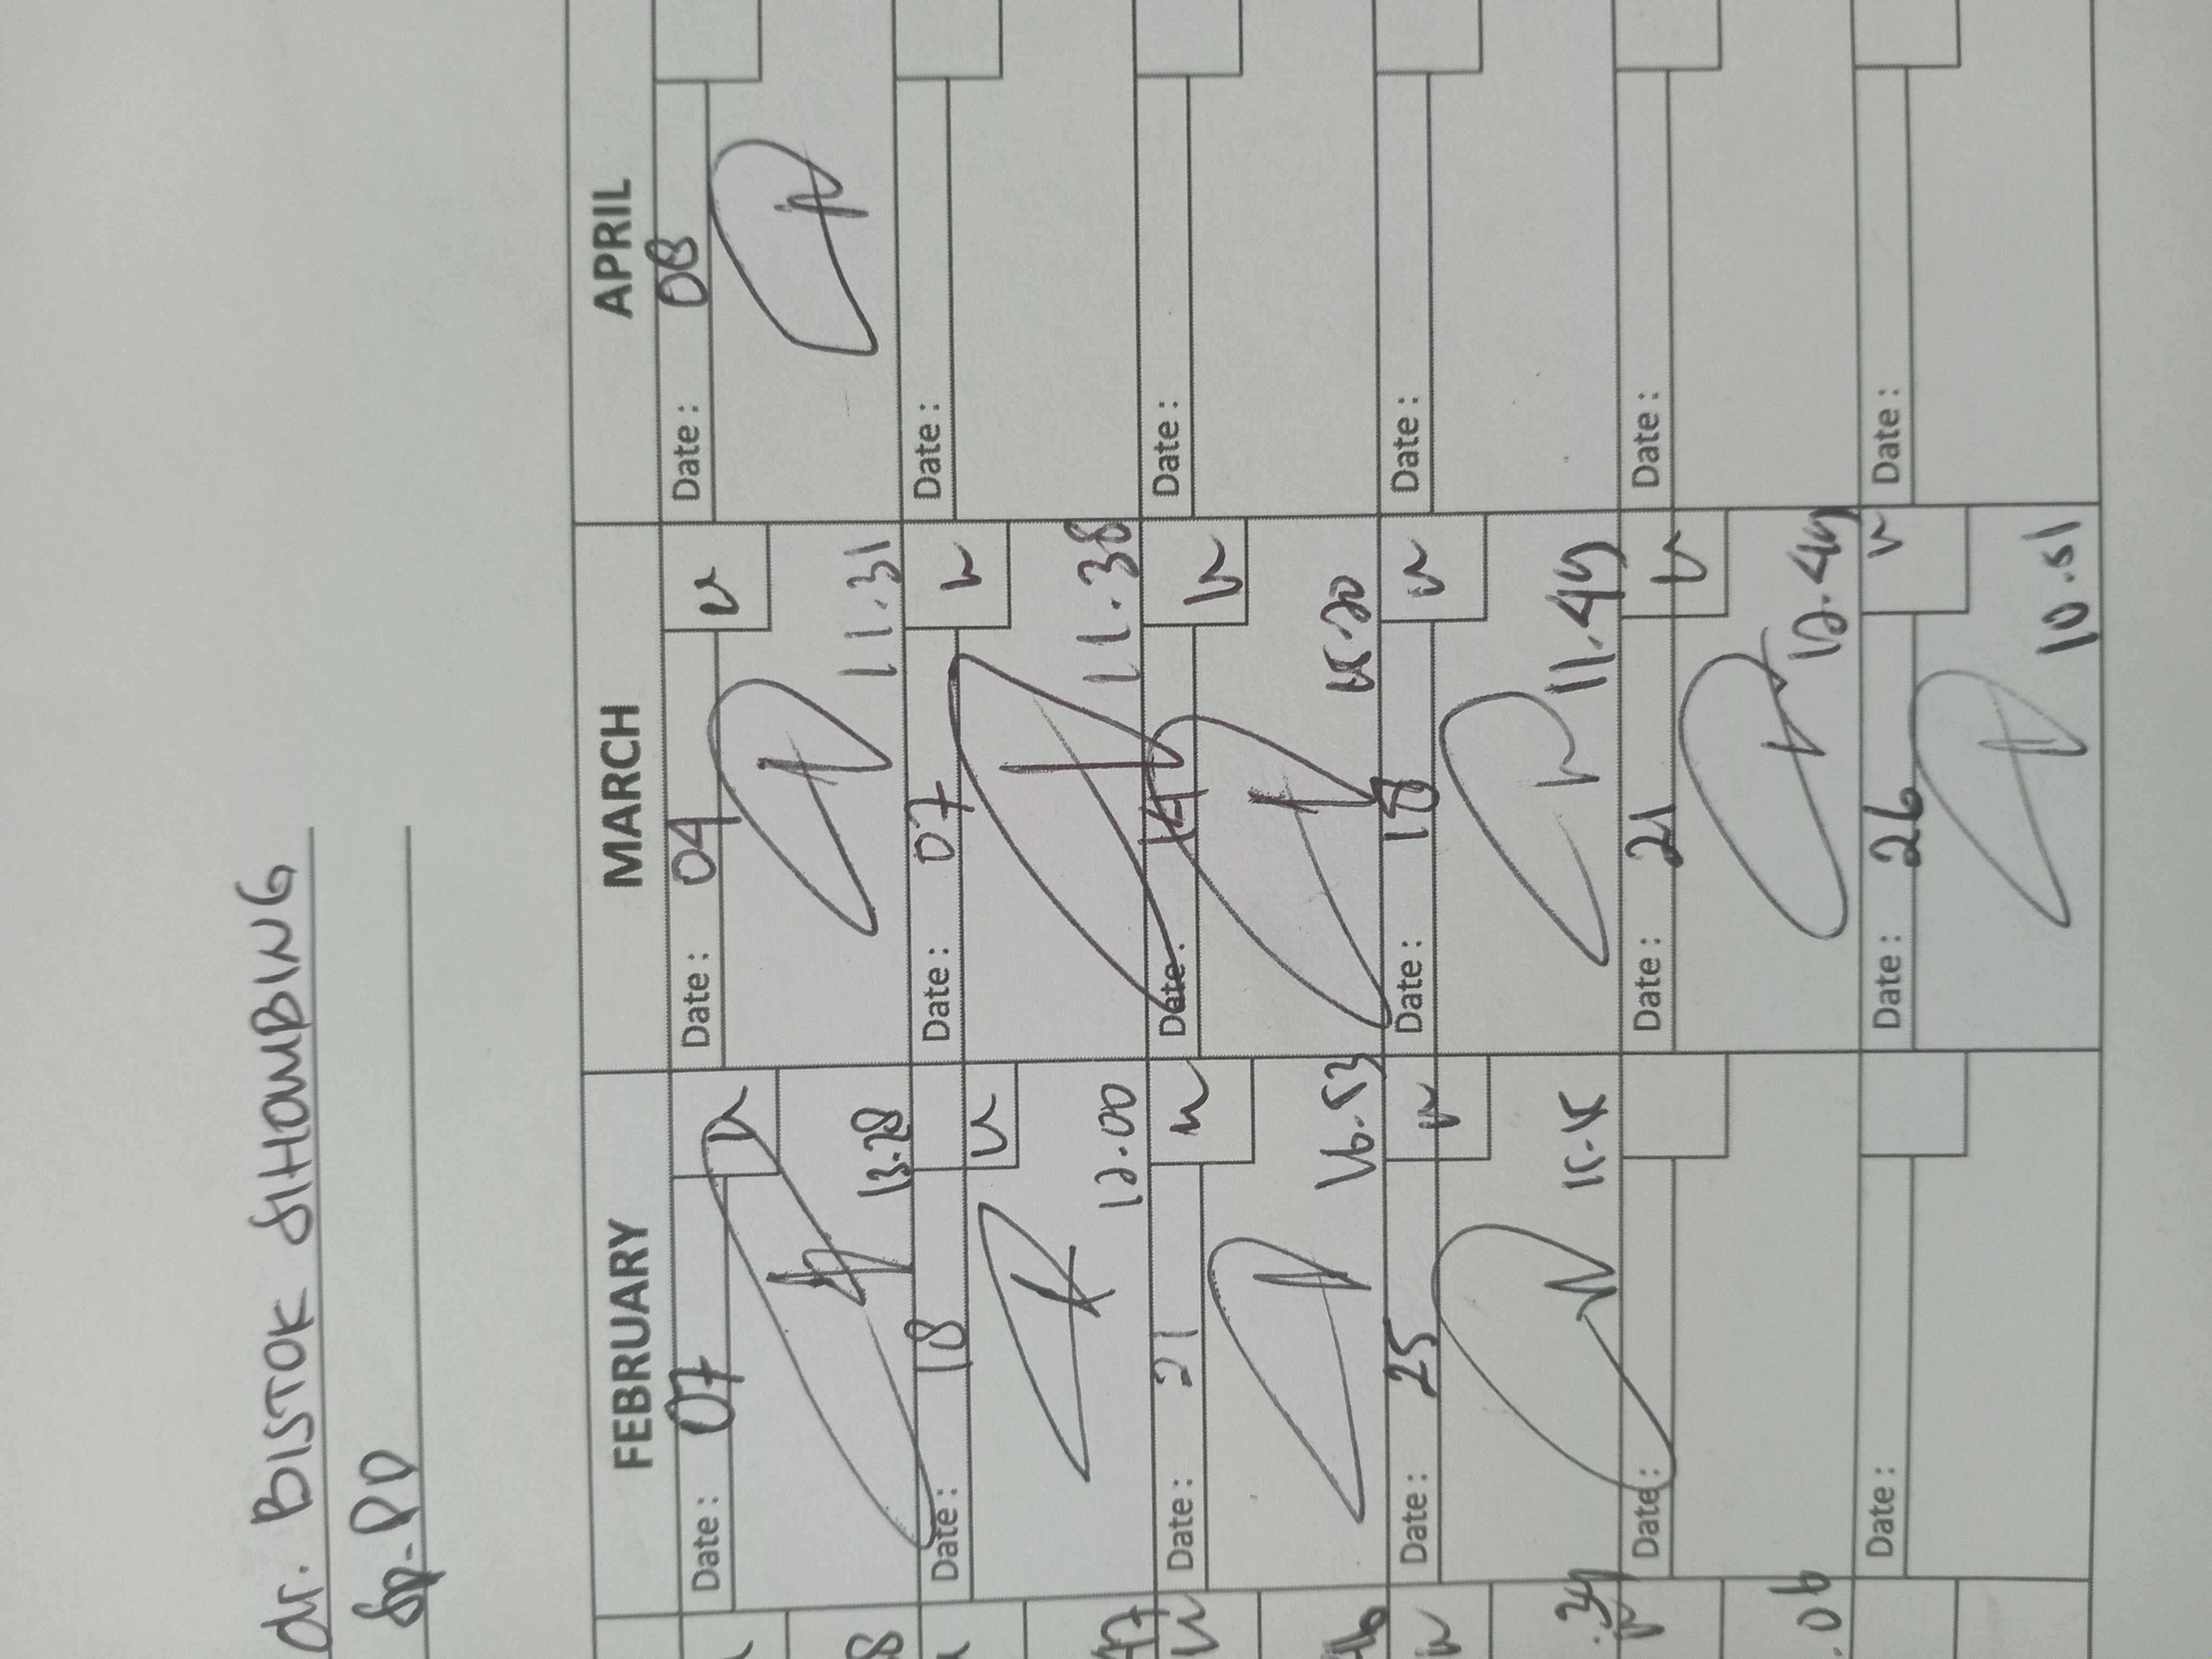 dr. BISTOK SIHOMBING
Sp.PD
FEBRUARY MARCH APRIL
Date: 07 Date: 04 Date: 08
13.28 11.31
Date: 18 Date: 07 Date:
12.00 11.38
Date: 21 Date: 14 Date:
16.53 15.20
Date: 25 Date: 18 Date:
15.15 11.49
Date: Date: 21 Date:
12.49
Date: Date: 26 Date:
10.51